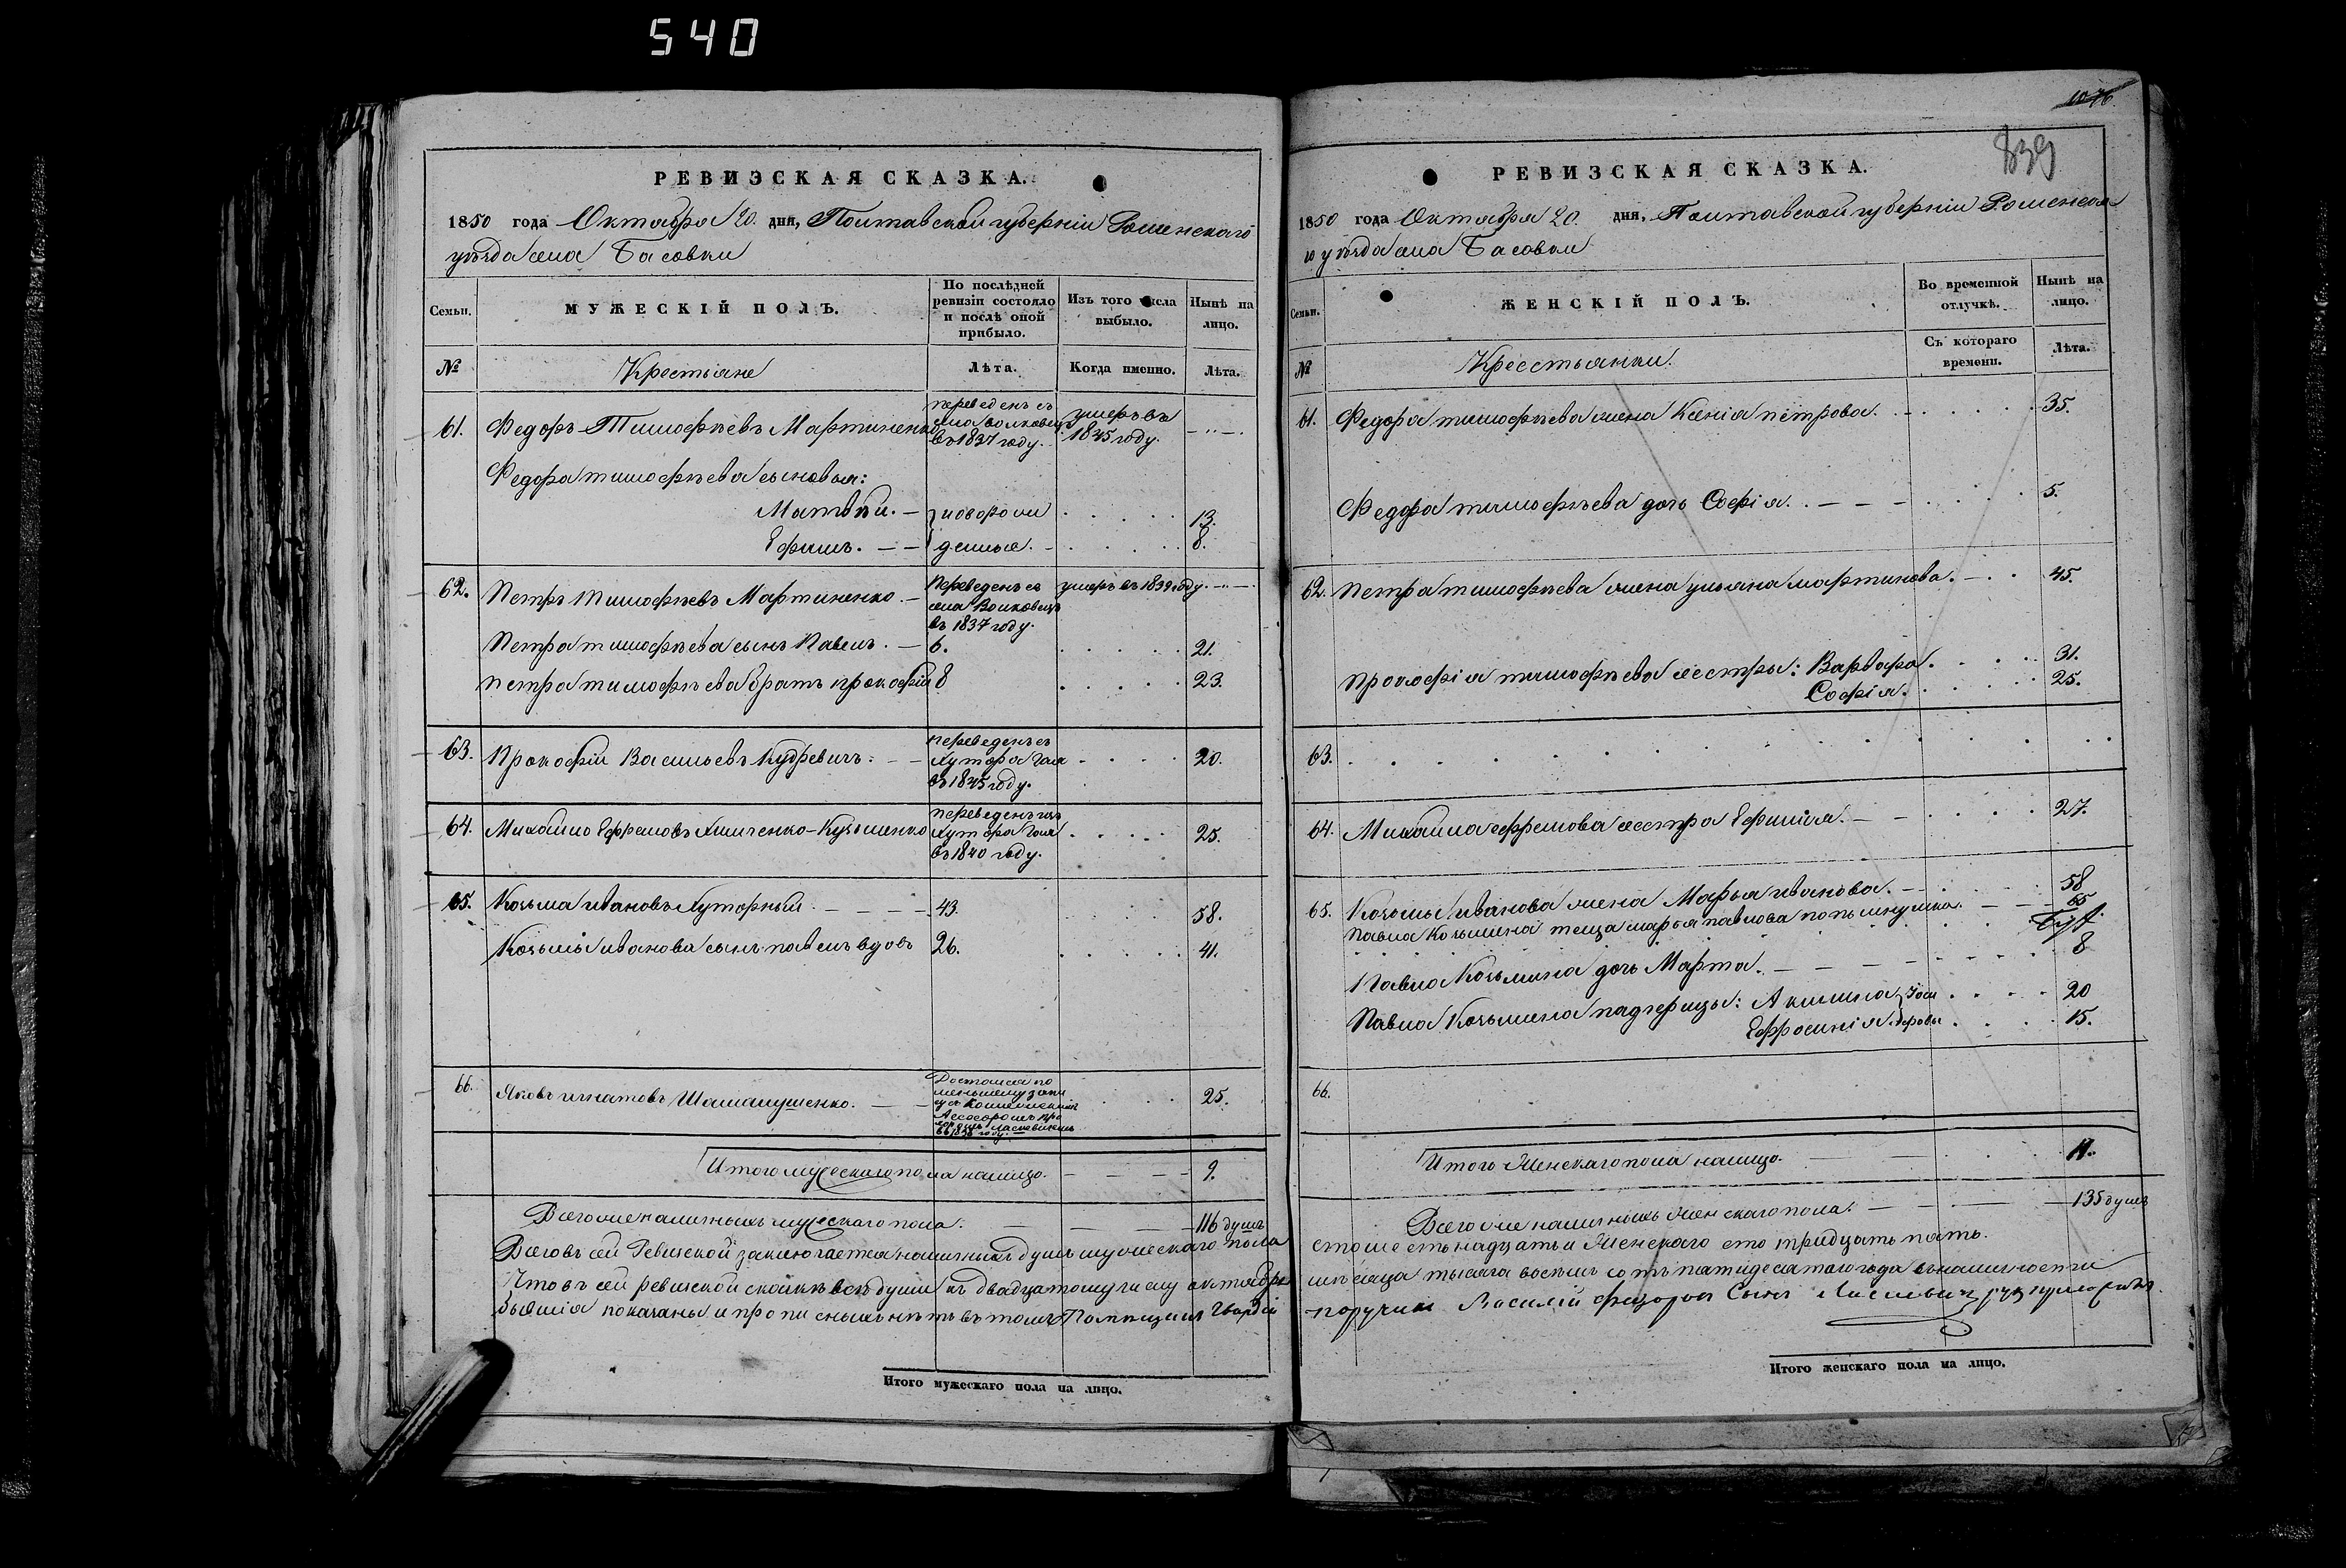 540
РЕВИЗСКАЯ СКАЗКА.
1850 года Октября 20. дня, Полтавской губерніи Роменскаго
уѣзда села Басовки
Семьи.
МУЖЕСКІЙ ПОЛЪ.
По послѣдней ревизіи состояло и послѣ оной прибыло.
Изъ того числа выбыло.
Нынѣ на лицо.
№
Крестьяне
Лѣта.
Когда именно.
Лѣта.
61. Федоръ Тимофѣевъ Мартиненко переведенъ съ села Волковецъ въ 1837 году. умеръ въ 1845 году.
Федора тимофѣева сыновья:
Матвѣй. новорож 13.
Ефимъ. денные. 8.
62. Петръ тимофѣевъ Мартиненко переведенъ съ села Волковецъ въ 1837 году. умеръ въ 1839 году.
Петра тимофѣева сынъ Павелъ. 6. 21.
петра тимофѣева братъ прокофій 8 23.
63. Прокофій Васильевъ Кудревичъ. переведенъ съ Хутора Гая въ 1845 году. 20.
64. Михайло Ефремовъ Климченко-Кузьменко переведенъ изъ Хутора Гая въ 1840 году. 25.
65. Козьма ивановъ Хуторный 43. 58.
Козьмы иванова сынъ павелъ вдовъ 26. 41.
66. Яковъ игнатовъ 25.
Итого мужескаго пола налицо. 9.
Всего же наличныхъ мужескаго пола. 116 душъ
Всего въ сей Ревизской заключается наличныхъ душъ мужескаго пола
Что въ сей ревизской сказкѣ всѣ души къ двадцатому числу октября
бывшія показаны и прописныхъ нѣтъ въ томъ Помѣщикъ Гвардіи
Итого мужескаго пола на лицо.
1076
839
РЕВИЗСКАЯ СКАЗКА.
1850 года Октября 20. дня, Полтавской губерніи Роменска
го уѣзда села Басовки
Семьи.
ЖЕНСКІЙ ПОЛЪ.
Во временной отлучкѣ.
Нынѣ на лицо.
№
Крестьянки.
Съ котораго времени.
Лѣта.
61. Федора тимофѣева жена Ксенія петрова. 35.
Федора тимофѣева дочь Софія. 5.
62. Петра тимофѣева жена ульяна мартинова. 45.
Прокофія тимофѣева сестры: Варвара. 31.
Софія. 25.
63.
64. Михайла ефремова сестра Ефимія. 27.
65. Козьмы иванова жена Марья иванова. 58
Павла Козьмина теща марья павлова 65
Павла Козьмина дочь Марта. 8
Павла Козьмина падчерицы: Акилина 20
Ефросинія 15.
66.
Итого Женскаго пола налицо. 11.
Всего же наличныхъ женскаго пола. 135 душъ
сто шестьнадцать и Женскаго сто тридцать пять.
мѣсяца тысяча восемь сотъ пятидесятаго года въ наличности
поручикъ Василій Федоровъ Сынъ
Итого женскаго пола на лицо.